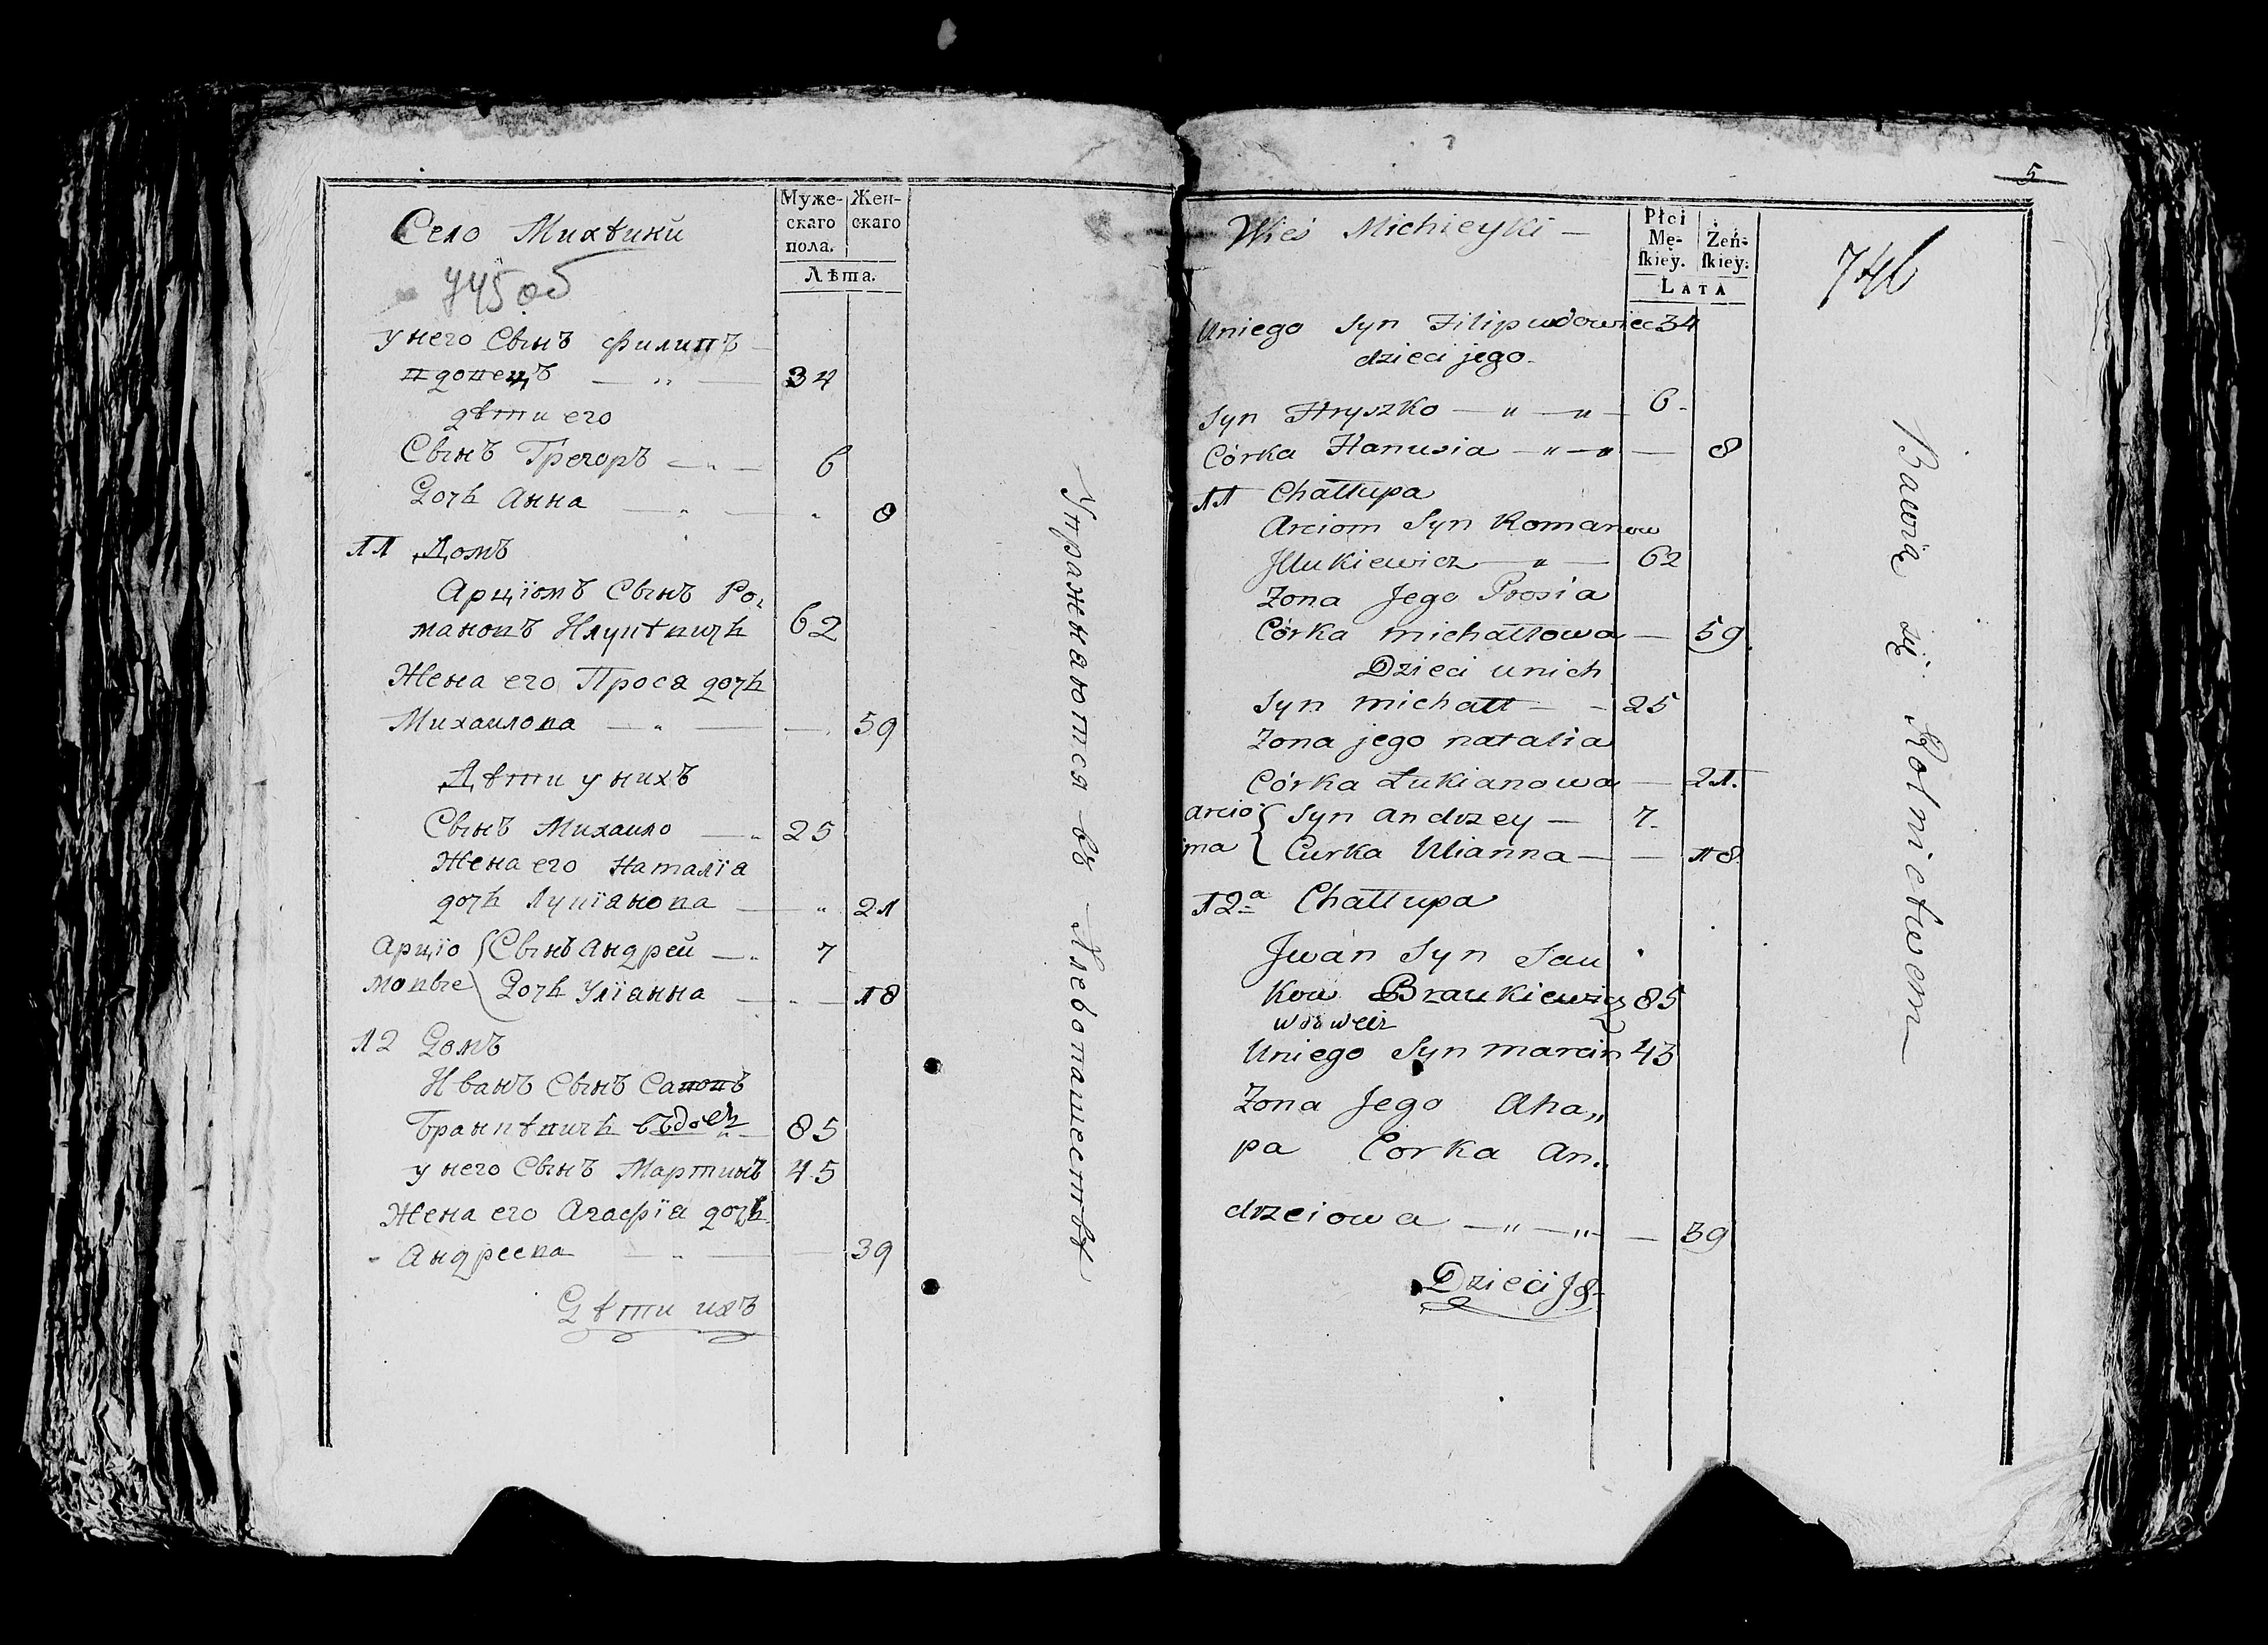 Село Михѣики
745 об
Муже-
скаго
пола.
Жен-
скаго
Лѣта.
у него Сынъ Филипъ
вдовецъ — „ — 34
дѣти его
Сынъ Грегоръ — „ — 6
Дочь Анна — „ — „ 8
11 Домъ
Арціомъ Сынъ Ро„
мановъ Илукѣвичь 62
Жена его Прося дочь
Михаилова — „ — — 59
Дѣти у нихъ
Сынъ Михаило — „ 25
Жена его Наталія
дочь Лукіанова — „ 21
Арціо { Сынъ Андрей — „ 7
мовые { Дочь Уліанна — „ — 18
12 Домъ
Иванъ Сынъ Савовъ
Бранкѣвичь въдовец — 85
у него Сынъ Мартинъ 45
Жена его Агафіа дочь
Андреева — „ — — 39
Дѣти ихъ
Упражнаются въ Хлебопашествѣ
5
Wieś Michieyki —
Płci
Mę-
skiey.
Żeń-
skiey:
LATA
746
Uniego Syn Filip wdowiec 34
dzieci jego
Syn Hryszko — „ — „ — 6.
Córka Hanusia — „ — „ — 8
11 Chałłupa
Arciom Syn Romanow
Illukiewicz — „ — 62
Zona Jego Prosia
Córka michałłowa — 59
Dzieci unich
Syn michałł — - 25
Zona jego natalia
Córka Łukianowa — 21.
arcio { Syn andrzey — 7.
ma { Curka Ulianna — — 18
12a Chałłupa
Jwan Syn Sau
kou Braukiewicz 85
wdowiec
Uniego Syn marcin 45
Zona Jego Aha„
pa Corka An„
drzeiowa — „ — „ — 39
Dzieci J8
Bawią się Rolnictwem